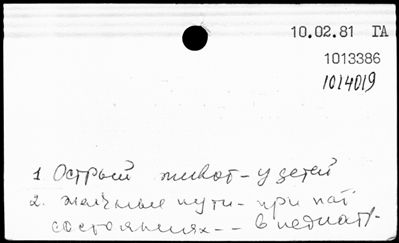 10.02.81 ГА
1013386
1014019
1 Острый живот - у детей
2. желчные пути - при пат
состояниях -- в педиатр.